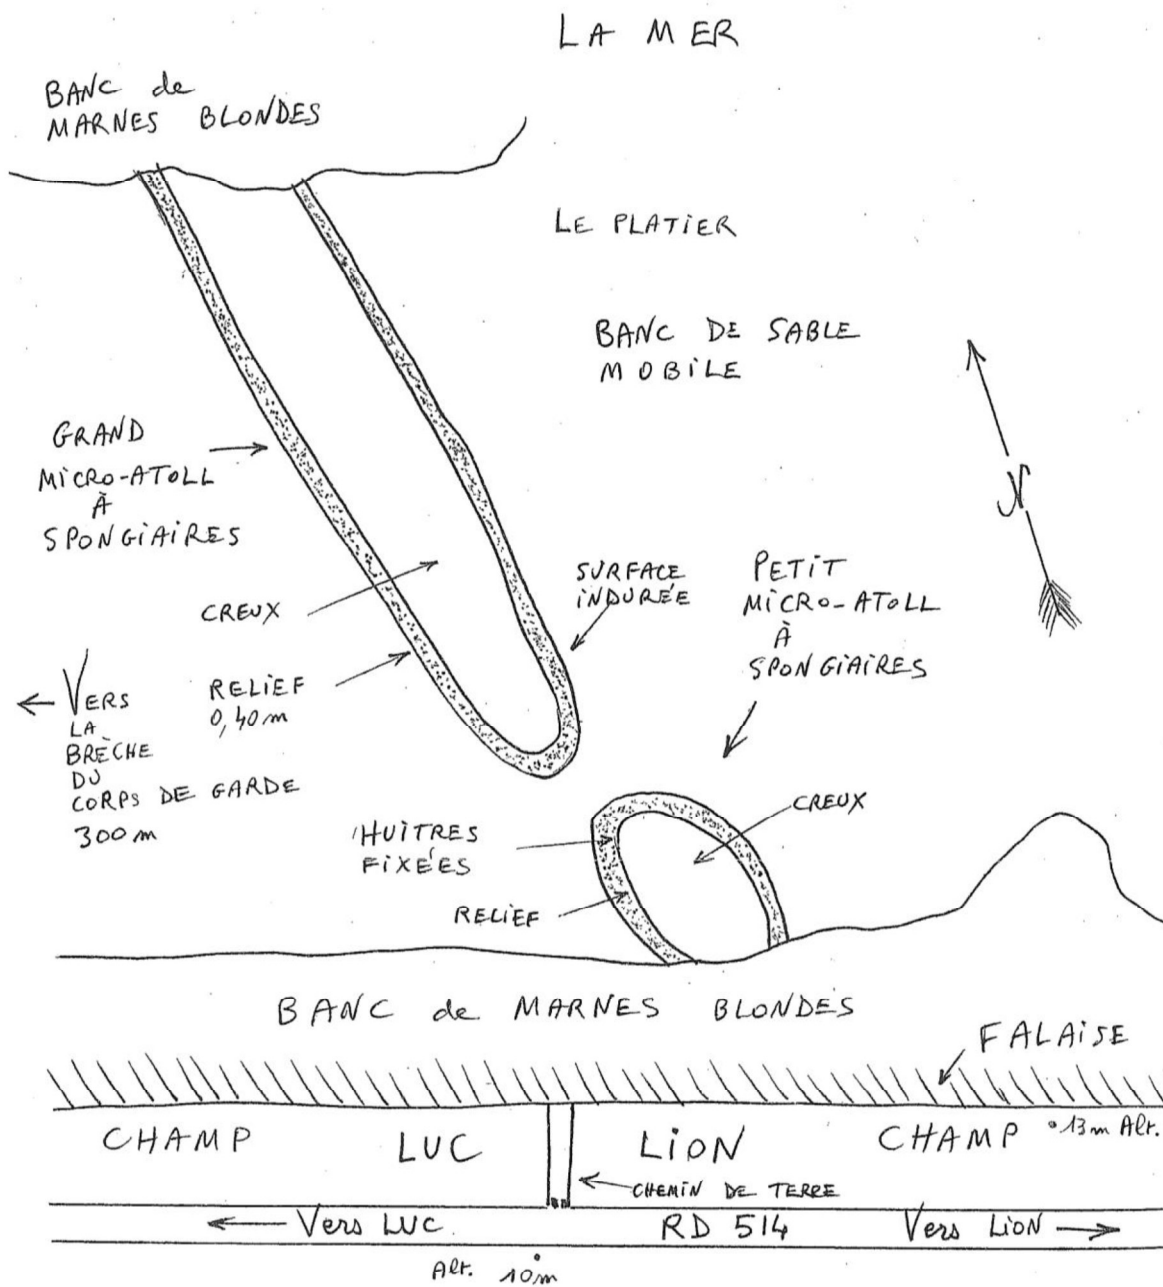 LA MER
BANC de
MARNES BLONDES
LE PLATIER
BANC DE SABLE
MOBILE
GRAND
MICRO-ATOLL
À
SPONGIAIRES
N
CREUX
SURFACE
INDURÉE
PETIT
MICRO-ATOLL
À
SPONGIAIRES
RELIEF
0,40m
VERS
LA
BRÈCHE
DU
CORPS DE GARDE
300m
HUÎTRES
FIXÉES
CREUX
RELIEF
BANC de MARNES BLONDES
FALAISE
CHAMP LUC LION CHAMP 13m Alt.
CHEMIN DE TERRE
Vers LUC RD 514 Vers LION
Alt. 10m